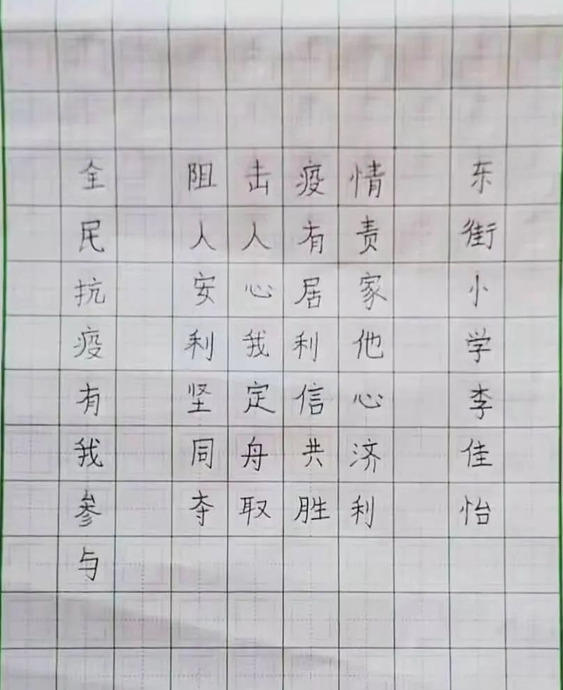 全民抗疫有我参与
阻击疫情
人人有责
安心居家
利我利他
坚定信心
同舟共济
夺取胜利
东街小学李佳怡